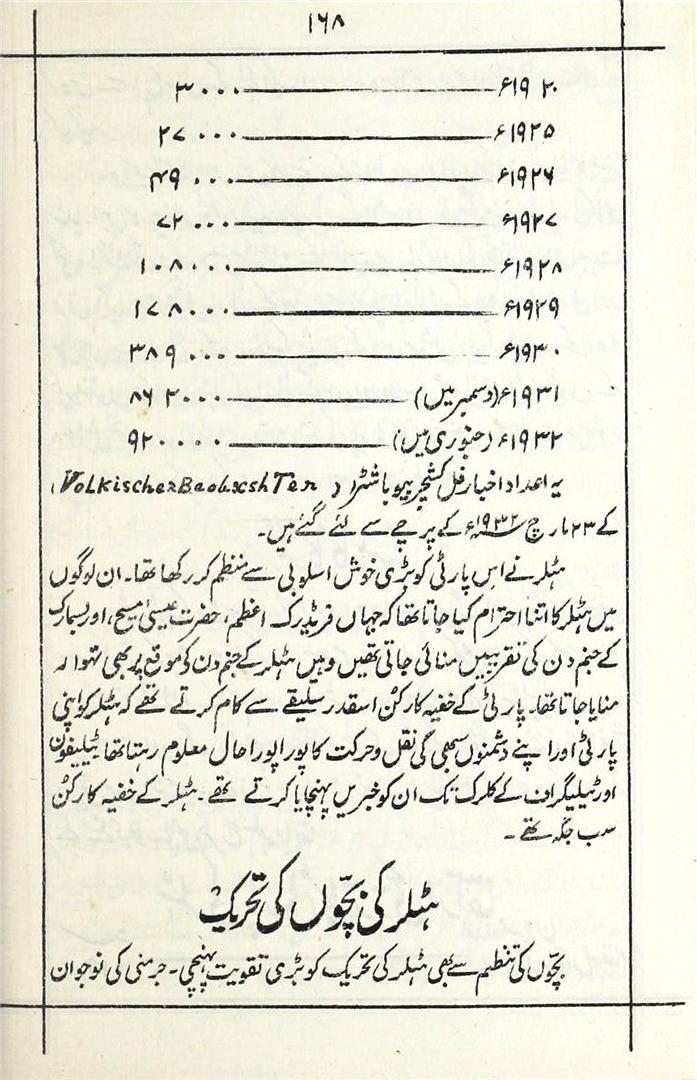 ۱۶۸
۱۹۲۰ء ——— ۳۰۰۰
۱۹۲۵ء ——— ۲۷۰۰۰
۱۹۲۶ء ——— ۴۹۰۰۰
۱۹۲۷ء ——— ۷۲۰۰۰
۱۹۲۸ء ——— ۱۰۸۰۰۰
۱۹۲۹ء ——— ۱۷۸۰۰۰
۱۹۳۰ء ——— ۳۸۹۰۰۰
۱۹۳۱ء (دسمبر میں) ——— ۸۶۲۰۰۰
۱۹۳۲ء (جنوری میں) ——— ۹۲۰۰۰۰
یہ اعداد اخبار فل کشچر بیوباشٹر (VolkischerBeobxshTer)
کے ۲۳ مارچ ۱۹۳۲ء کے پرچے سے لئے گئے ہیں۔
ہٹلر نے اس پارٹی کو بڑی خوش اسلوبی سے منظم کر رکھا تھا۔ ان لوگوں
میں ہٹلر کا اتنا احترام کیا جاتا تھا کہ جہاں فریڈرک اعظم، حضرت عیسیٰ مسیح، اور بسمارک
کے جنم دن کی تقریبیں منائی جاتی تھیں وہیں ہٹلر کے جنم دن کو موقع پر بھی تہوار
منایا جاتا تھا۔ پارٹی کے خفیہ کارکن اسقدر سلیقے سے کام کرتے تھے کہ ہٹلر کو اپنی
پارٹی اور اپنے دشمنوں سبھی کی نقل و حرکت کا پورا پورا حال معلوم رہتا تھا ٹیلیفون
اور ٹیلیگراف کے کلرک تک ان کو خبریں پہنچایا کرتے تھے۔ ہٹلر کے خفیہ کارکن
سب جگہ تھے۔
ہٹلر کی بچّوں کی تحریک
بچّوں کی تنظیم سے بھی ہٹلر کی تحریک کو بڑی تقویت پہنچی۔ جرمنی کی نوجوان